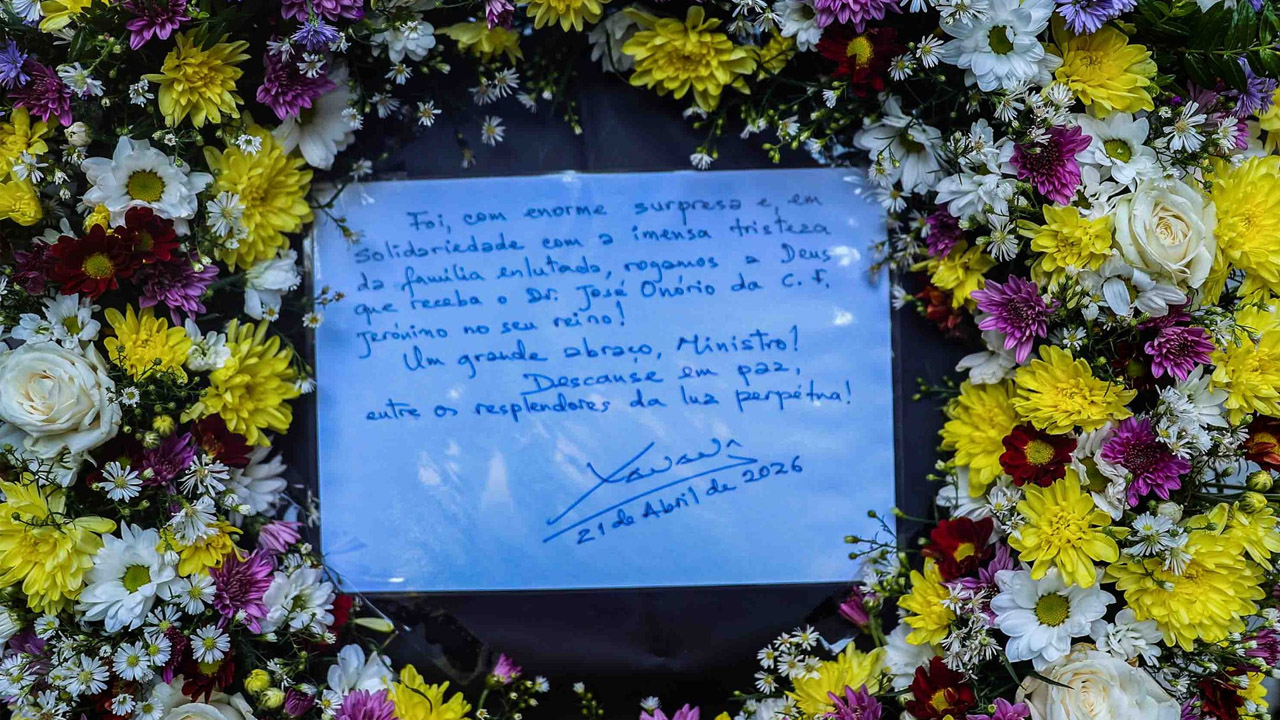 Foi, com enorme surpresa e, em
solidariedade com a imensa tristeza
da família enlutada, rogamos a Deus
que receba o Dr. José Onório da C. F.
Jerónimo no seu reino!
Um grande abraço, Ministro!
Descanse em paz,
entre os resplendores da luz perpétua!
Xanana
21 de Abril de 2026